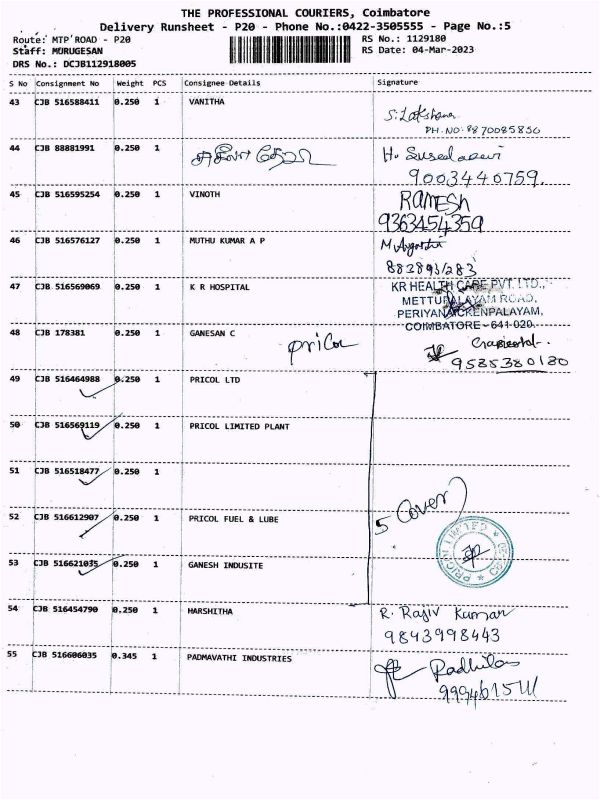 THE PROFESSIONAL COURIERS, Coimbatore
Delivery Runsheet - P20 - Phone No.:0422-3505555 - Page No.:5
Route: MTP ROAD - P20 RS No.: 1129180
Staff: MURUGESAN RS Date: 04-Mar-2023
DRS No.: DCJB112918005
S No Consignment No Weight PCS Consignee Details Signature
43 CJB 516588411 0.250 1 VANITHA
PH.NO: 8870085850
44 CJB 88881991 0.250 1 H. Suseeladevi
9003440759.
45 CJB 516595254 0.250 1 VINOTH RAMESH
9363454359
46 CJB 516576127 0.250 1 MUTHU KUMAR A P
47 CJB 516569069 0.250 1 K R HOSPITAL KR HEALTH CARE PVT. LTD.,
METTUPALAYAM ROAD,
PERIYANAICKENPALAYAM,
COIMBATORE - 641 020.
48 CJB 178381 0.250 1 GANESAN C pricol
9585380180
49 CJB 516464988 0.250 1 PRICOL LTD
50 CJB 516569119 0.250 1 PRICOL LIMITED PLANT
51 CJB 516518477 0.250 1
5 Cover
52 CJB 516612907 0.250 1 PRICOL FUEL & LUBE
PRICOL LIMITED
53 CJB 516621035 0.250 1 GANESH INDUSITE
54 CJB 516454790 0.250 1 HARSHITHA R. Rajiv Kumar
9843998443
55 CJB 516606035 0.345 1 PADMAVATHI INDUSTRIES